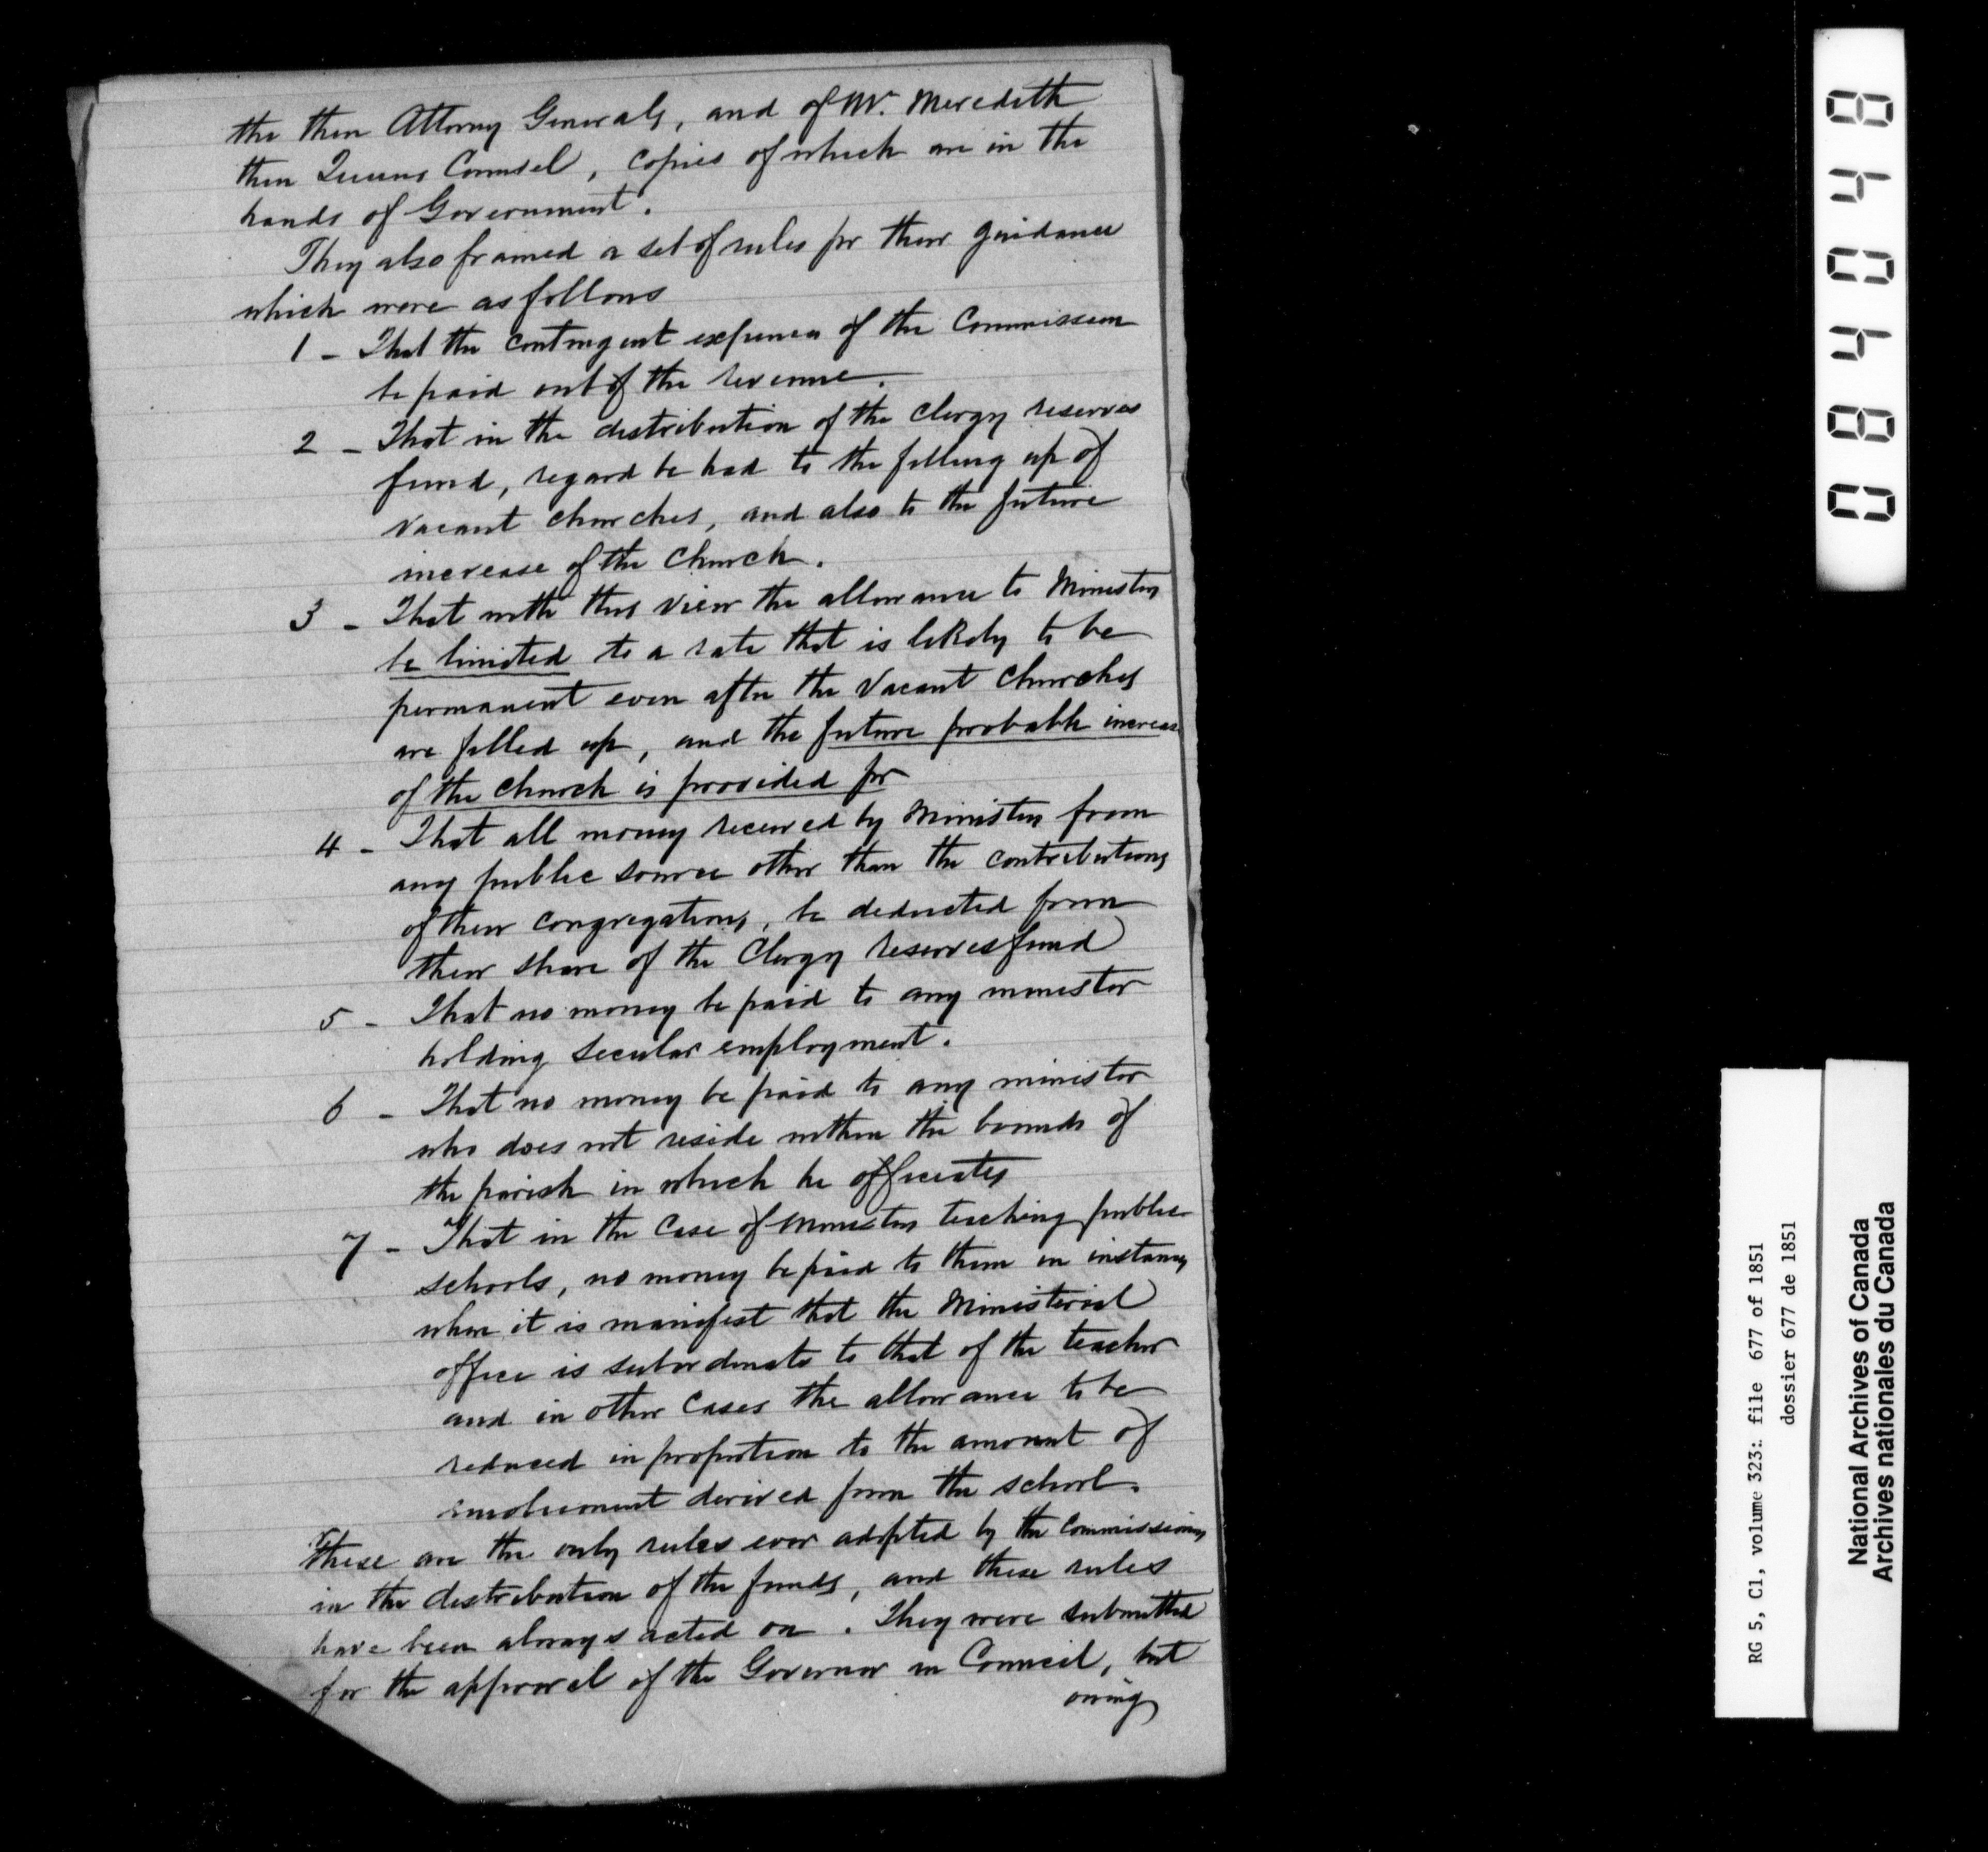 the then Attorney Generals, and of Mr. Meredith
then Queens Counsel, copies of which are in the
hands of Government.
They also framed a set of rules for their guidance
which were as follows
1 - That the contingent expenses of the Commission
be paid out of the revenue.
2 - That in the distribution of the clergy reserves
fund, regard be had to the filling up of
vacant churches, and also to the future
increase of the Church.
3 - That with this view the allowance to Ministers
be limited to a rate that is likely to be
permanent even after the vacant Churches
are filled up, and the future probable increase
of the church is provided for
4 - That all money received by Ministers from
any public source other than the contributions
of their congregations, be deducted from
their share of the Clergy reserves fund
5 - That no money be paid to any minister
holding secular employment.
6 - That no money be paid to any minister
who does not reside within the bounds of
the parish in which he officiates
7 - That in the case of Ministers teaching public
schools, no money be paid to them in instances
when it is manifest that the Ministerial
office is subordinate to that of the teacher
and in other cases the allowance to be
reduced in proportion to the amount of
emolument derived from the school.
These are the only rules ever adopted by the Commissioners
in the distribution of the funds, and these rules
have been always acted on. They were submitted
for the approval of the Governor in Council, but
owing
084048
RG 5, C1, volume 323: file 677 of 1851
dossier 677 de 1851
National Archives of Canada
Archives nationales du Canada